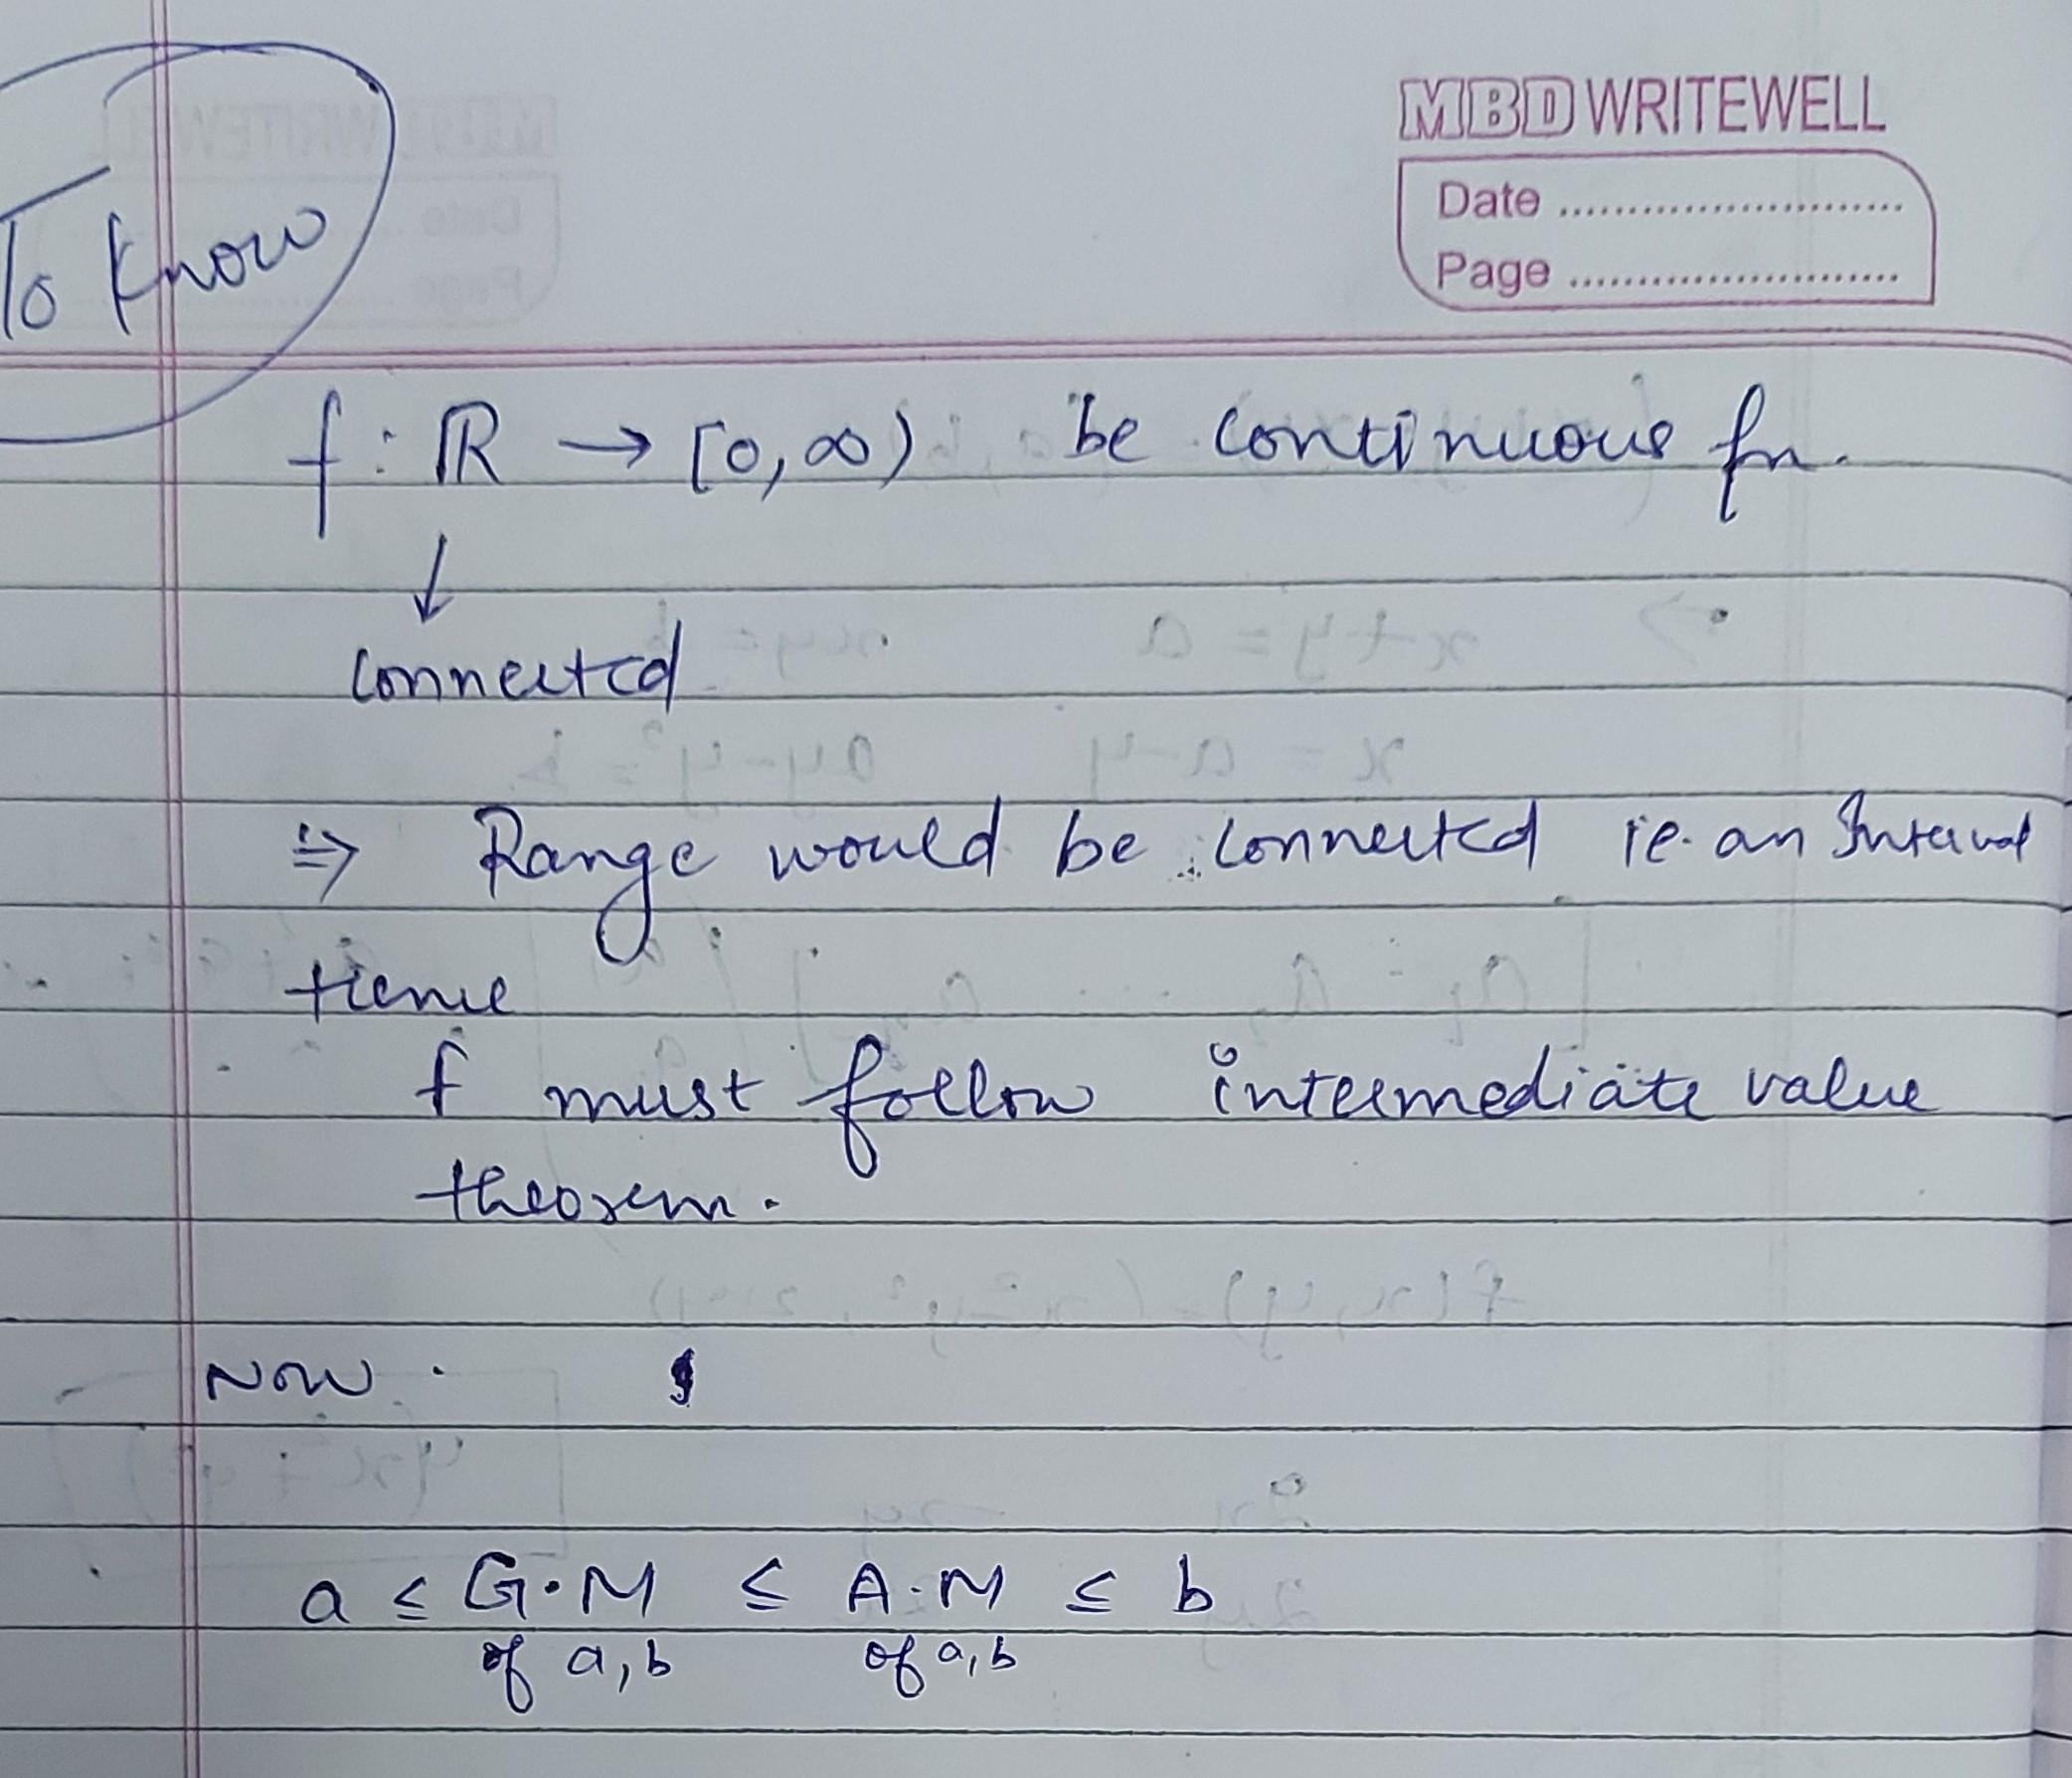 To Know
MBD WRITEWELL
Date ..........................
Page .........................
f : ℝ → [0, ∞) be continuous fn.
↓
Connected
⇒ Range would be connected ie. an Interval
Hence
f must follow intermediate value
theorem.
NOW .
a ≤ G.M ≤ A.M ≤ b
of a, b of a, b